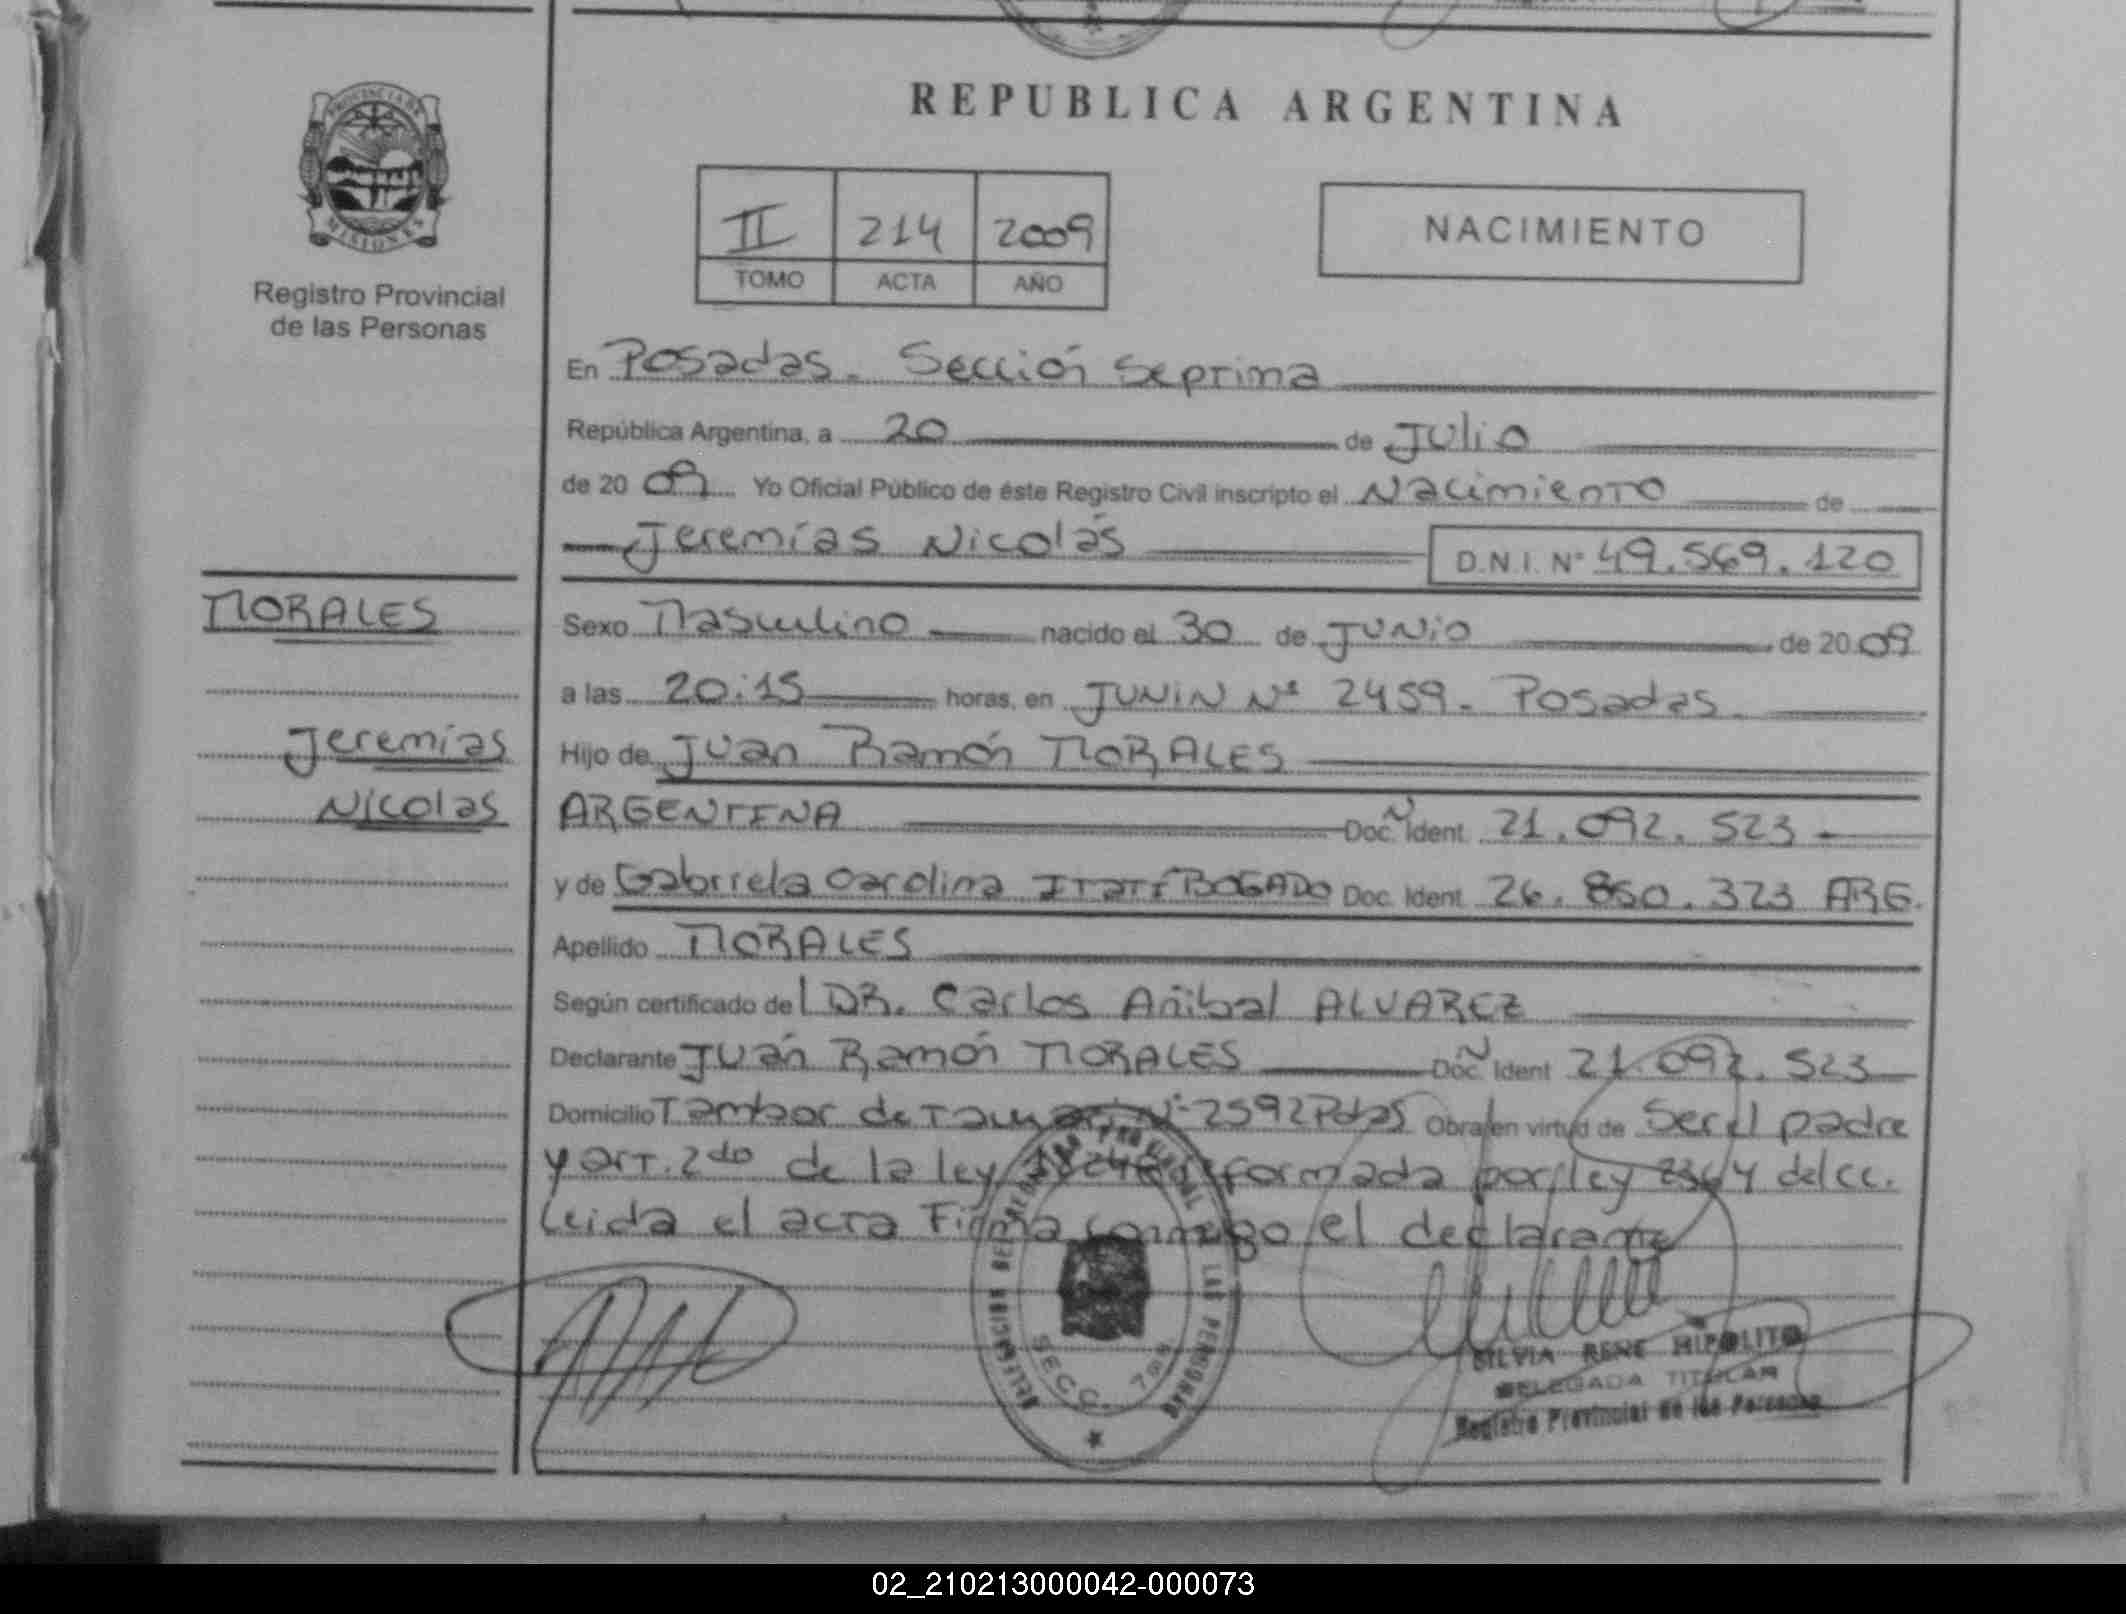 REPUBLICA ARGENTINA
PROVINCIA DE
MISIONES
Registro Provincial
de las Personas
II 214 2009
TOMO ACTA AÑO
NACIMIENTO
En Posadas. Sección Septima
República Argentina, a 20 de Julio
de 20 09 Yo Oficial Público de éste Registro Civil inscripto el Nacimiento de
Jeremías Nicolás D.N.I. Nº 49.569.120
MORALES
Jeremías
Nicolas
Sexo Masculino nacido el 30 de Junio de 20 09
a las 20:15 horas, en JUNIN Nº 2459. Posadas.
Hijo de Juan Ramón MORALES
ARGENTINA Doc. Ident. 21.092.523
y de Gabriela Carolina Itatí BOGADO Doc. Ident. 26.850.323 ARG.
Apellido MORALES
Según certificado del DR. Carlos Aníbal ALVAREZ
Declarante Juan Ramón MORALES Doc. Ident 21.092.523
Domicilio Tambor de Nº 2592 Pdas Obra en virtud de Ser el padre
y art. 2do de la ley formada por ley del CC.
Leida el acta Firma conmigo el declarante
SECC. 7ma
SILVIA RENE HIPOLITO
DELEGADA TITULAR
Registro Provincial de las Personas
02_210213000042-000073